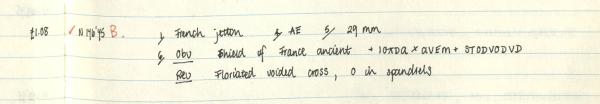 £1.08 ✓ N 146'45 B. 1, French jetton 4, AE 5, 29 mm
6, Obv Shield of France ancient + IOADQ × AVEM + STODVODVD
Rev Floriated voided cross, O in spandrels